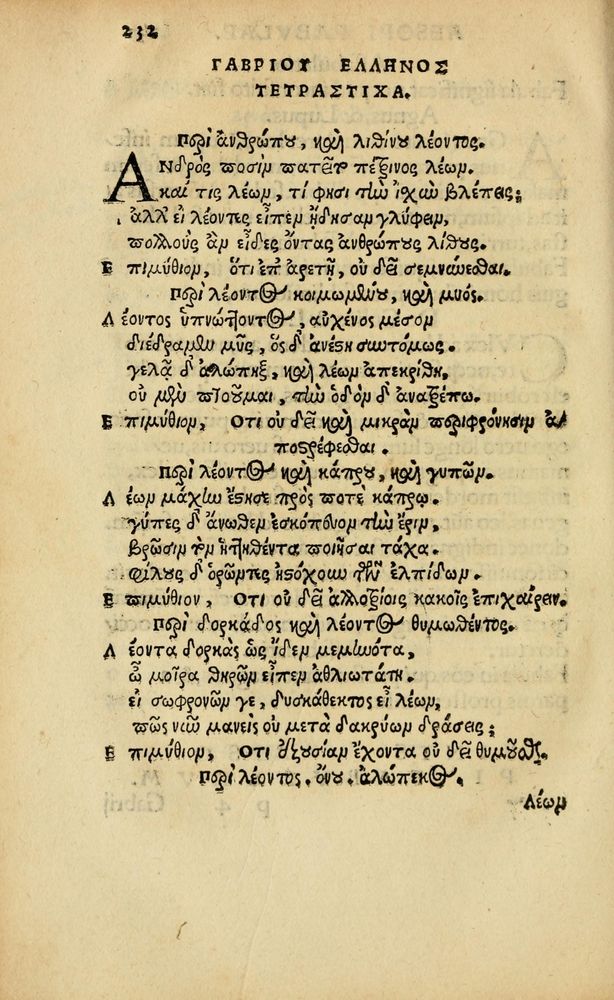 232
ΓΑΒΡΙΟΥ ΕΛΛΗΝΟΣ
ΤΕΤΡΑΣΤΙΧΑ.
Περὶ ἀνθρώπου, καὶ λιθίνου λέοντος.
ΑΝδρὸς ποσὶν πατεῖτο πέτρινος λέων.
καί τις λέων, τί φησι τὴν ἰχὼ βλέπεις;
ἀλλ' εἰ λέοντες εἶπεν ᾔδησαν γλύφειν,
πολλοὺς ἂν εἶδες ὄντας ἀνθρώπους λίθους.
Ε πιμύθιον, ὅτι ἐπ' ἀρετῇ, οὐ δεῖ σεμνύνεσθαι.
Περὶ λέοντος κοιμωμένου, καὶ μυός.
Λ έοντος ὑπνώττοντος, αὐχένος μέσον
διέδραμεν μῦς, ὃς δ' ἀνέστη συντόμως.
γελᾷ δ' ἀλώπηξ, καὶ λέων ἀπεκρίθη,
οὐ μὲν πτοοῦμαι, τὴν ὁδὸν δ' ἀνατρέπω.
Ε πιμύθιον, Ὅτι οὐ δεῖ καὶ μικρὰν περιφρόνησιν ἀ-
ποστρέφεσθαι.
Περὶ λέοντος καὶ κάπρου, καὶ γυπῶν.
Λ έων μάχην ἔστησε πρός ποτε κάπρῳ.
γύπες δ' ἄνωθεν ἐσκόπουν τὴν ἔριν,
βρῶσιν τὸν ἡττηθέντα ποιῆσαι τάχα.
φίλους δ' ὁρῶντες ἠστόχουν τῶν ἐλπίδων.
Ε πιμύθιον, Ὅτι οὐ δεῖ ἀλλοτρίοις κακοῖς ἐπιχαίρειν.
Περὶ δορκάδος καὶ λέοντος θυμωθέντος.
Λ έοντα δορκὰς ὡς ἴδεν μεμηνότα,
ὦ μοῖρα θηρῶν εἶπεν ἀθλιωτάτη.
εἰ σωφρονῶν γε, δυσκάθεκτος εἶ λέων,
πῶς νῦν μανεὶς οὐ μετὰ δακρύων δράσεις;
Ε πιμύθιον, Ὅτι ἐξουσίαν ἔχοντα οὐ δεῖ θυμοῦσθαι.
Περὶ λέοντος. ὄνου. ἀλώπεκος.
Λέων